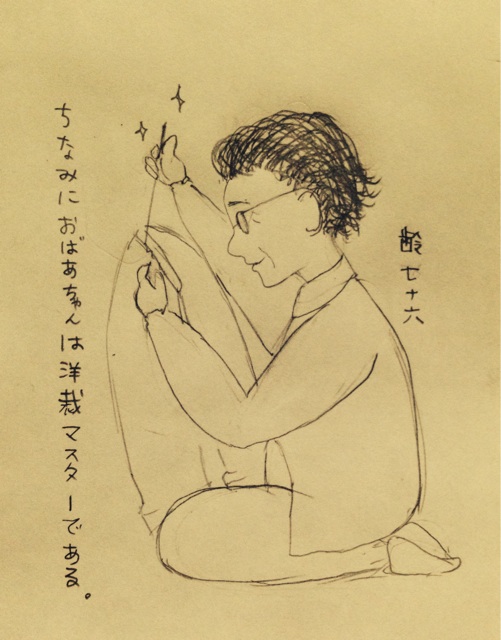 齢七十六
ちなみにおばあちゃんは洋裁マスターである。